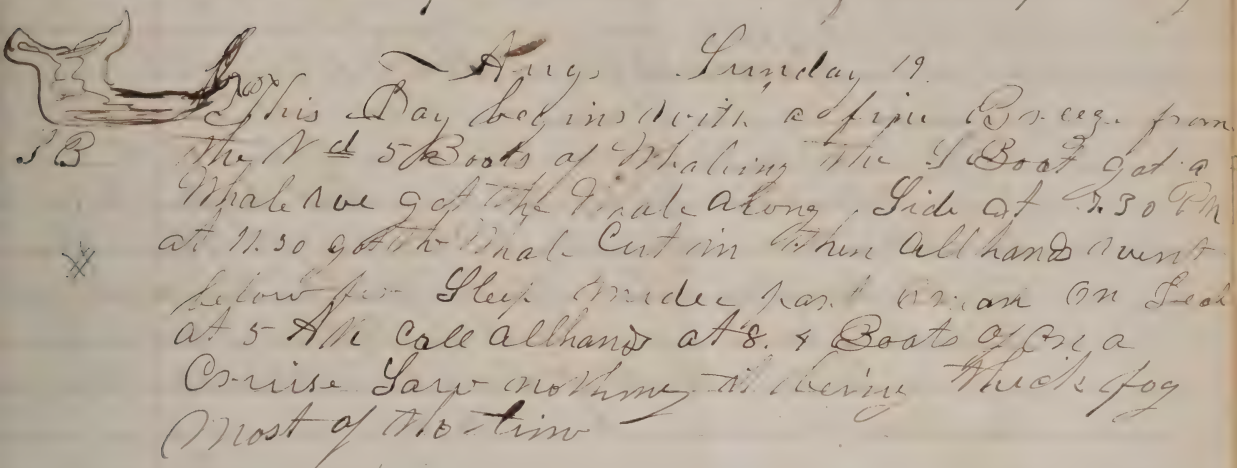 Aug. Sunday 19
This Day begins with a fine Breeze from
the Nd 5 Boats of Whaling the S Boat got a
Whale we got the Whale along Side at 7.30 PM
at 11.30 got the Whale Cut in then all hands went
below for Sleep midle part oneman on Deck
at 5 AM Call allhands at 8. 4 Boats of on a
Cruise Saw nothing it being thick fog
most of the time
S B